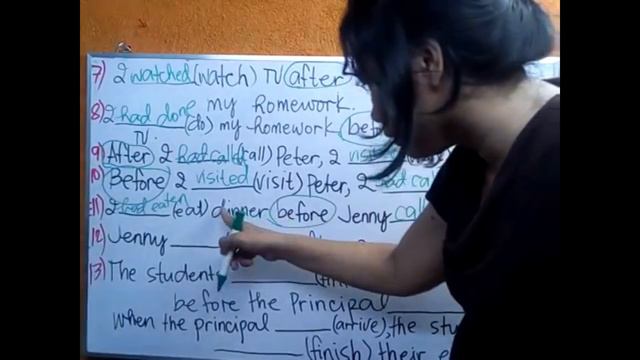 7) I watched (watch) TV after
my homework.
8) I had done (do) my homework
TV.
9) After I had call (call) Peter, I
10) Before I visited (visit) Peter, I had
11) I had eaten (eat) dinner before Jenny
12) Jenny ____
13) The student ____
before the Principal ____
when the principal ____ (arrive), the
____ (finish) their